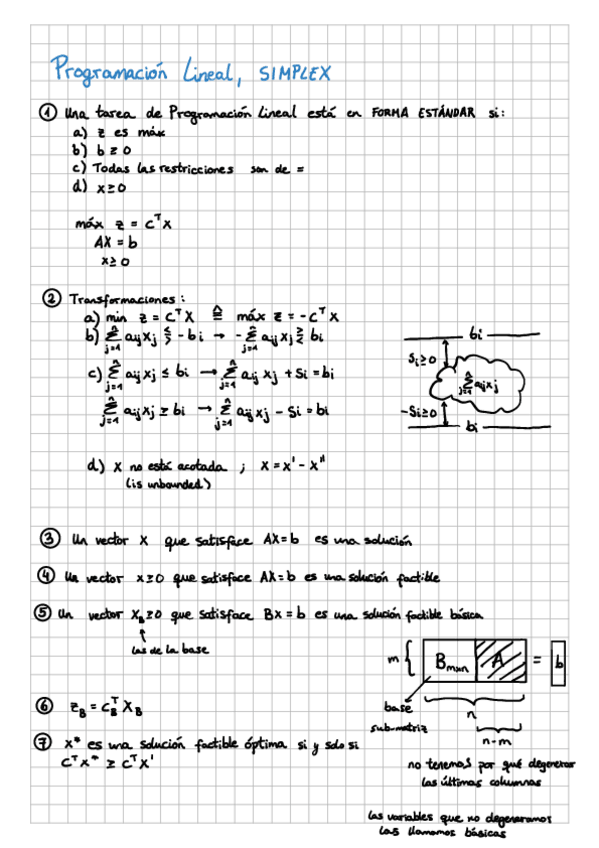 Programación Lineal, SIMPLEX
① Una tarea de Programación Lineal está en FORMA ESTÁNDAR si:
a) z es máx
b) b ≥ 0
c) Todas las restricciones son de =
d) x ≥ 0
máx z = cᵀx
AX = b
x ≥ 0
② Transformaciones:
a) min z = cᵀx ≙ máx z = -cᵀx
b) Σⁿⱼ₌₁ aᵢⱼxⱼ ≤≥ -bᵢ → -Σⁿⱼ₌₁ aᵢⱼxⱼ ≥≤ bᵢ
c) Σⁿⱼ₌₁ aᵢⱼxⱼ ≤ bᵢ → Σⁿⱼ₌₁ aᵢⱼxⱼ + Sᵢ = bᵢ
Σⁿⱼ₌₁ aᵢⱼxⱼ ≥ bᵢ → Σⁿⱼ₌₁ aᵢⱼxⱼ - Sᵢ = bᵢ
bᵢ
Sᵢ ≥ 0
Σⁿⱼ₌₁ aᵢⱼxⱼ
-Sᵢ ≥ 0
bᵢ
d) x no está acotada ; x = x' - x''
(is unbounded)
③ Un vector x que satisface AX = b es una solución
④ Un vector x ≥ 0 que satisface AX = b es una solución factible
⑤ Un vector X_B ≥ 0 que satisface Bx = b es una solución factible básica
las de la base
m { B_mxn A = b
base
sub-matriz
n
n-m
⑥ z_B = c_Bᵀ X_B
⑦ x* es una solución factible óptima si y solo si
cᵀx* ≥ cᵀx'
no tenemos por qué degenerar
las últimas columnas
las variables que no degeneramos
las llamamos básicas